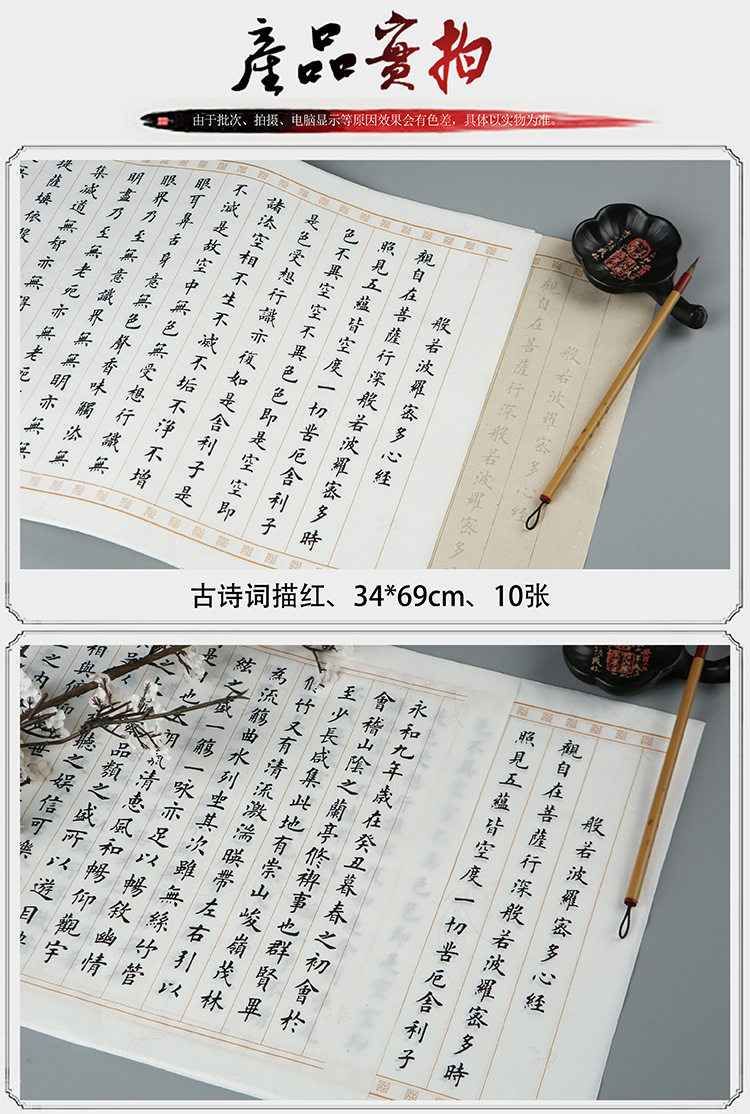 產品實拍
由于批次、拍摄、电脑显示等原因效果会有色差，具体以实物为准。
般若波羅密多心經
觀自在菩薩行深般若波羅密多
般若波羅密多心經
觀自在菩薩行深般若波羅密多時
照見五蘊皆空度一切苦厄舍利子
色不異空空不異色色即是空空即
是色受想行識亦復如是舍利子是
諸法空相不生不滅不垢不淨不增
不減是故空中無色無受想行識無
眼耳鼻舌身意無色聲香味觸法無
眼界乃至無意識界無無明亦無無
明盡乃至無老死亦無老死
集滅道無智亦無得
提薩埵依般
古诗词描红、34*69cm、10张
般若波羅密多心經
觀自在菩薩行深般若波羅密多時
照見五蘊皆空度一切苦厄舍利子
永和九年歲在癸丑暮春之初會於
會稽山陰之蘭亭修禊事也群賢畢
至少長咸集此地有崇山峻嶺茂林
修竹又有清流激湍暎帶左右引以
為流觴曲水列坐其次雖無絲竹管
絃之盛一觴一詠亦足以暢敘幽情
是日也天朗氣清惠風和暢仰觀宇
之大品類之盛所以遊目
聽之娛信可樂
相與